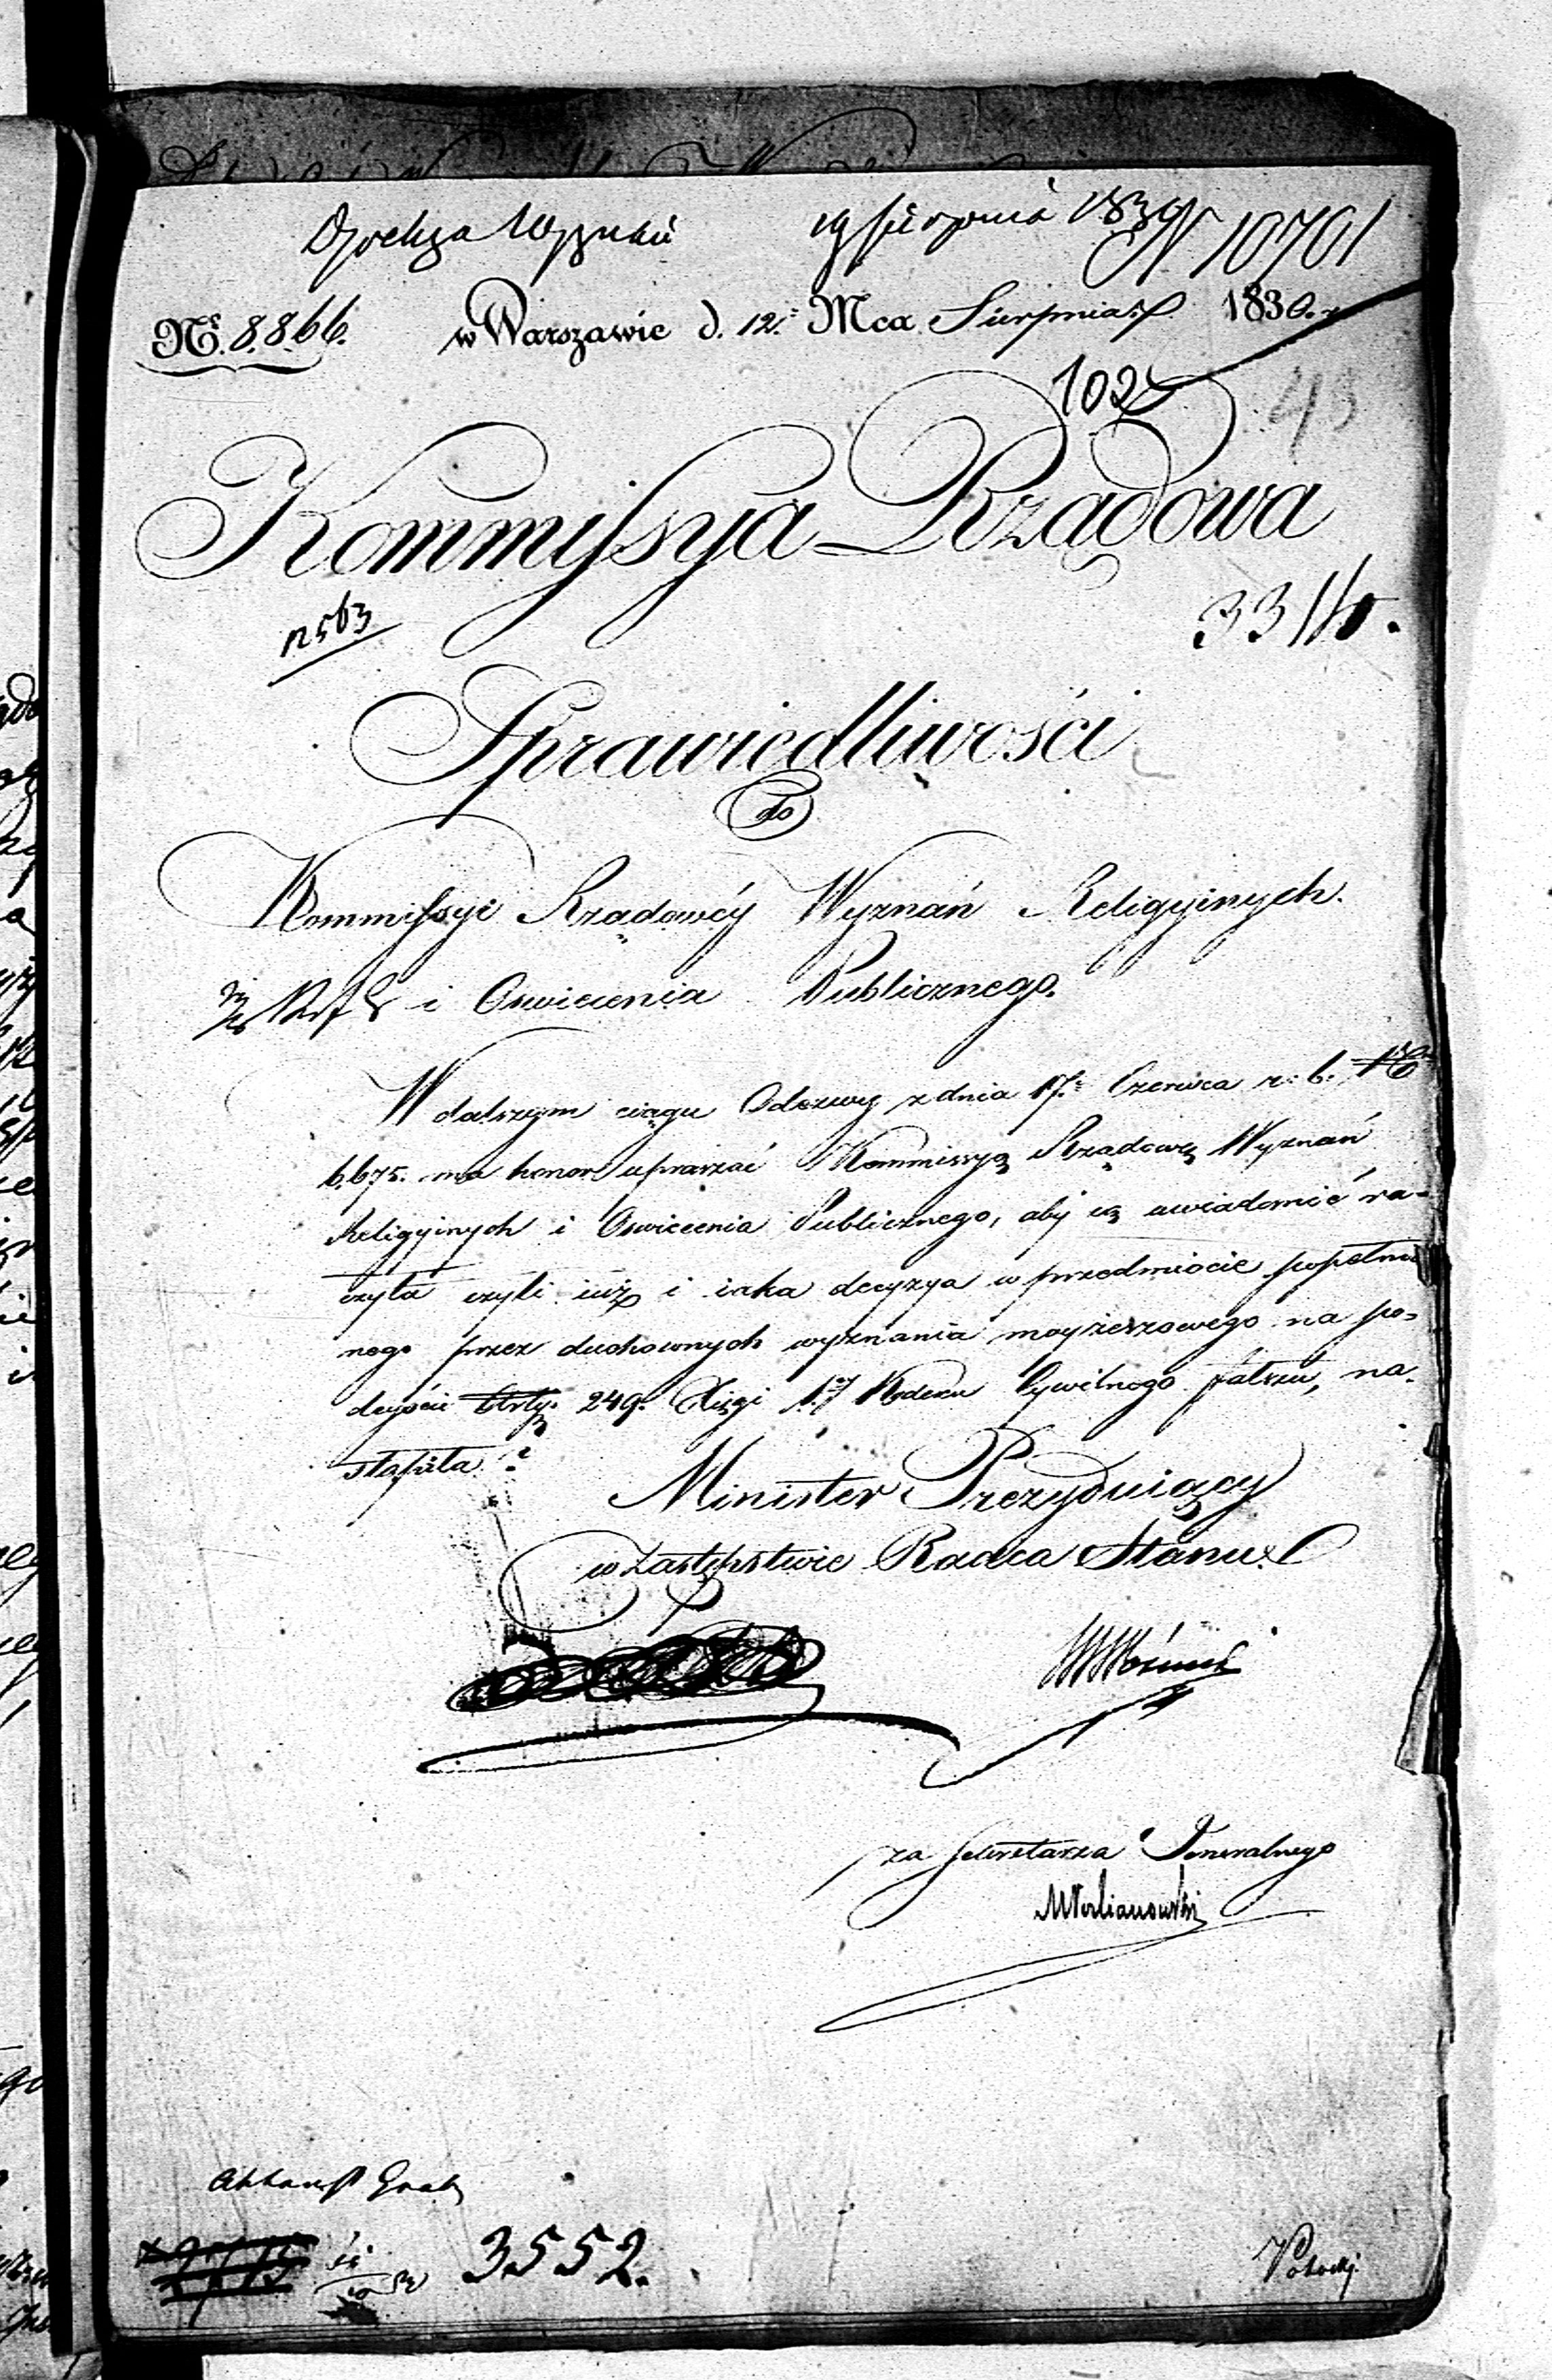 19 sierpnia 1830 N 10701
Nr. 8.866. w Warszawie d. 12. Mca Sierpnia 1830. r.
102
43
Kommissya Rządowa
12563
33
Sprawiedliwości
do
Kommissyi Rządowéy Wyznań Religyinych
i Oswiecenia Publicznego.
W dalszym ciągu Odezwy z dnia 17. Czerwca r: b: No
6.675. ma honor upraszać Kommissyą Rządową Wyznań
Religyinych i Oswiecenia Publicznego, aby ią uwiadomić ra-
czyła czyli iuż i iaka decyzya w przedmiocie popełnio
nego przez duchownych wyznania moyżeszowego na po-
deyście Artty. 249. Xięgi 1. Kodexu Cywilnego fałszu, na-
stąpiła?
Minister Prezyduiący
w Zastępstwie Radca Stanu
Woźnicki
za Sekretarza Generalnego
3552.
Potocki